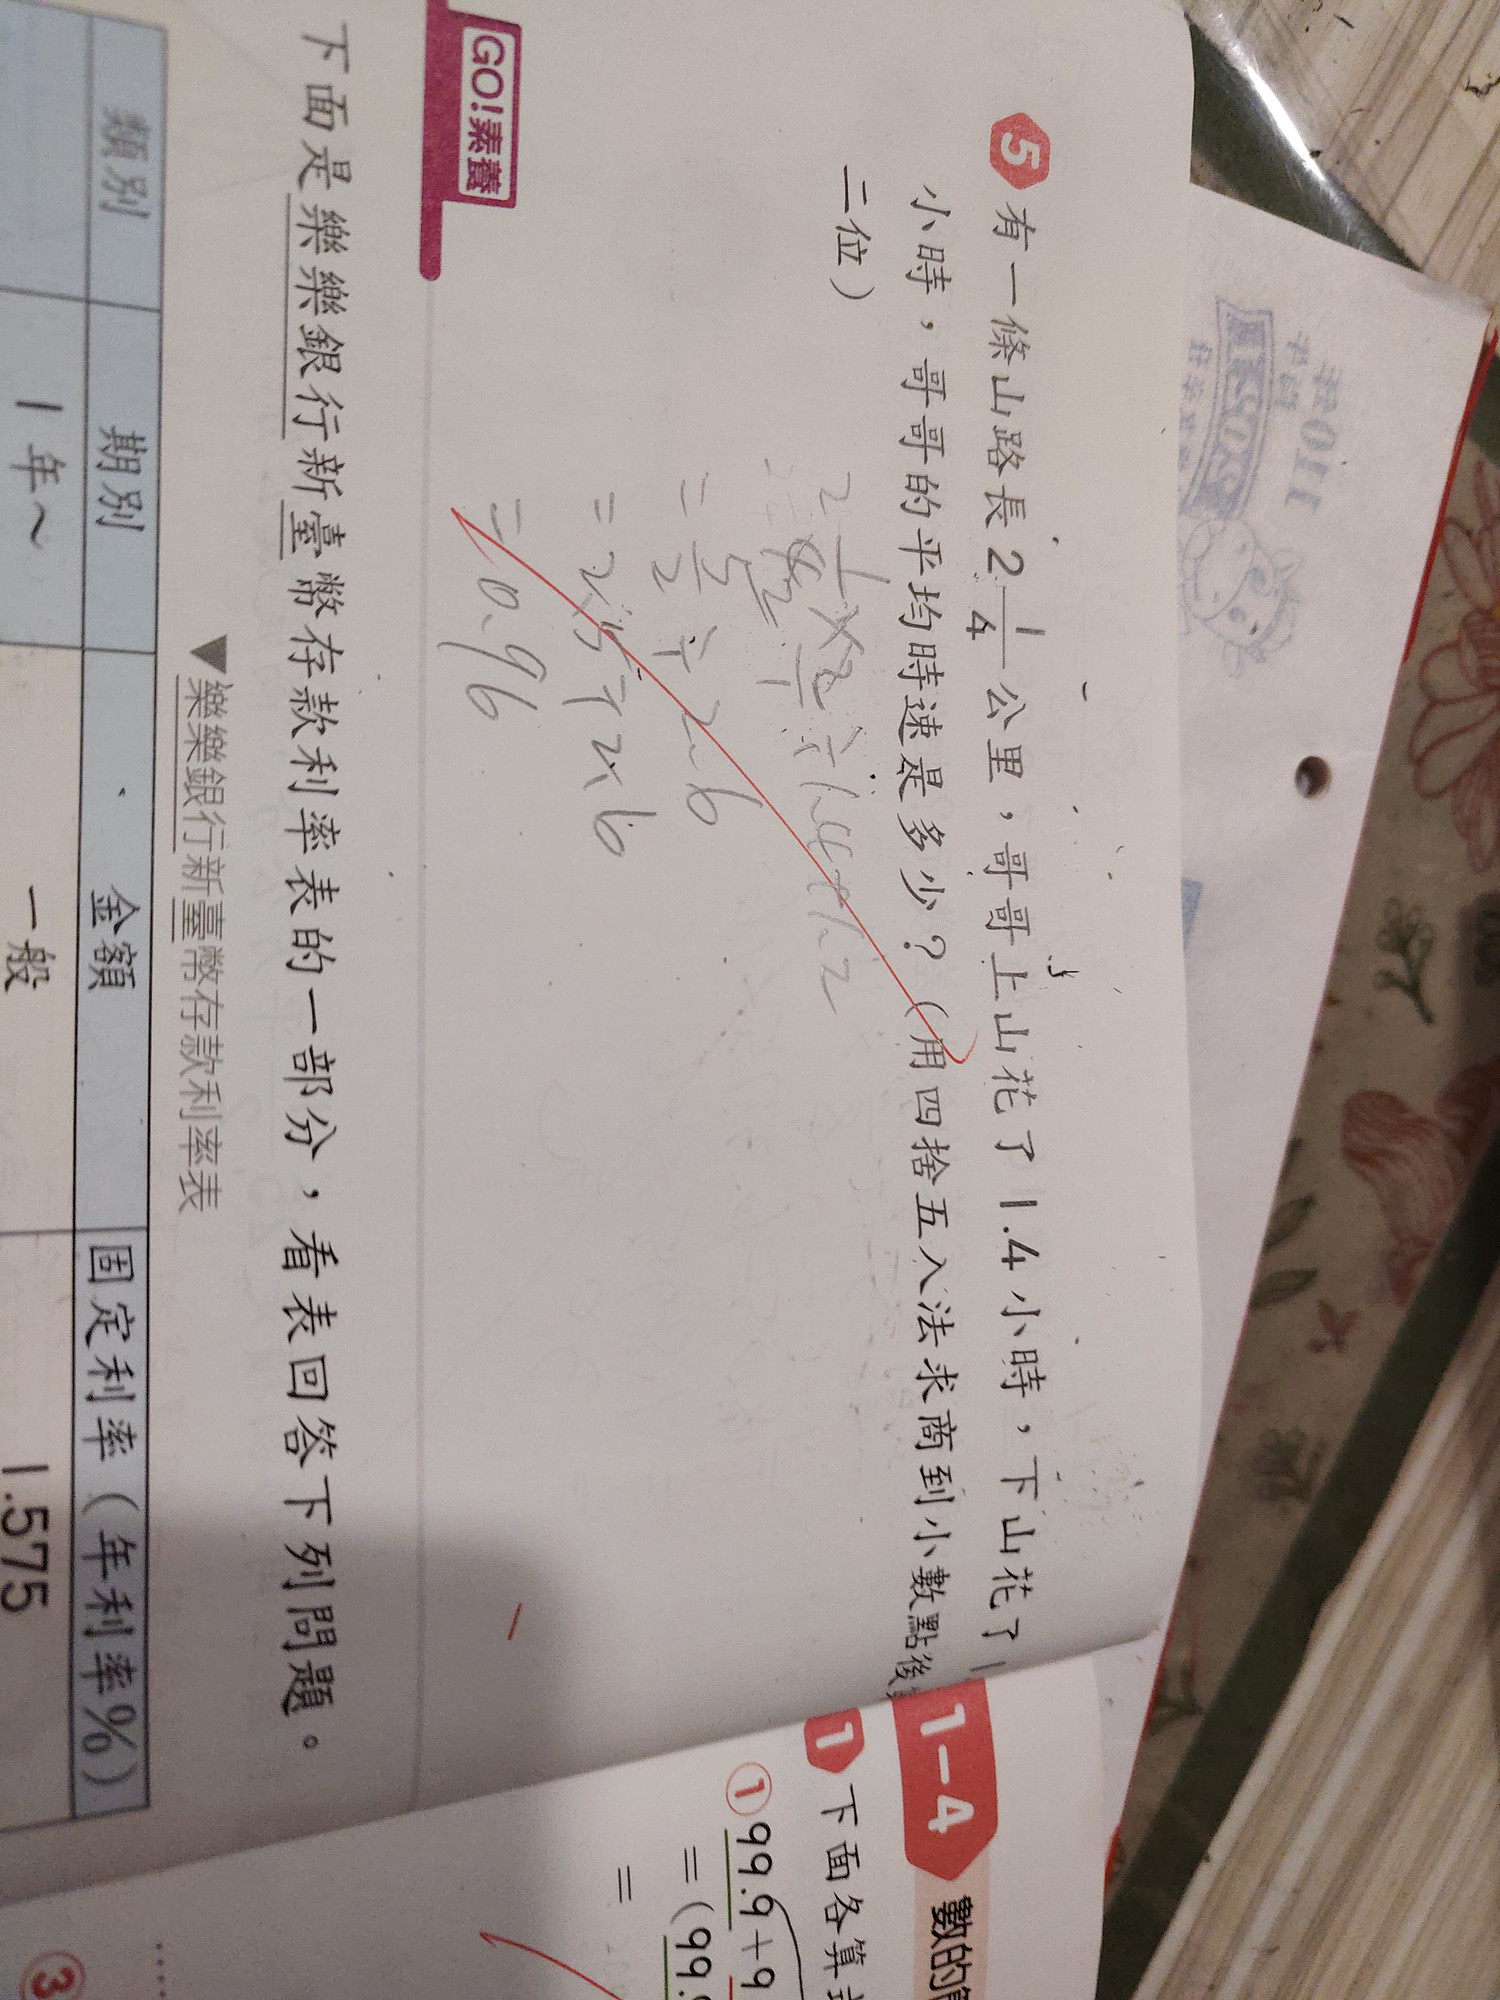 5 有一條山路長2 1/4 公里，哥哥上山花了1.4小時，下山花了1
小時，哥哥的平均時速是多少？（用四捨五入法求商到小數點後
二位）
= 5/2 ÷ 2.6
= 2×5 ÷ 2×6
= 0.96
GO!素養
下面是樂樂銀行新臺幣存款利率表的一部分，看表回答下列問題。
▼樂樂銀行新臺幣存款利率表
類別 期別 金額 固定利率（年利率%）
1年～ 一般 1.575
1-4 數的
1 下面各算式
① 99.9+9
=(99.
=
③